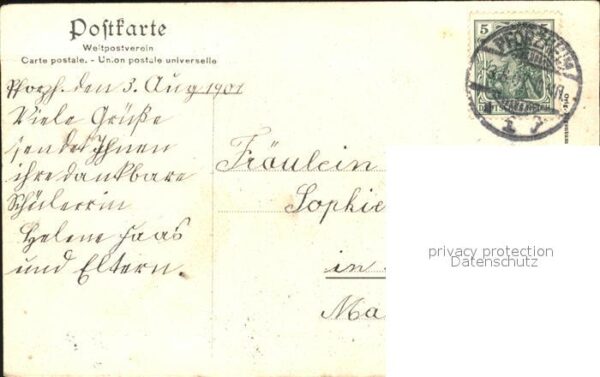 Postkarte
Weltpostverein
Carte postale. - Union postale universelle
Pforzh. den 3. Aug 1901
Viele Grüße
sendet Ihnen
ihre dankbare
Schülerrin
Helene Haas
und Eltern.
Fräulein
Sophie
in
Ma
5
PFORZHEIM
privacy protection
Datenschutz